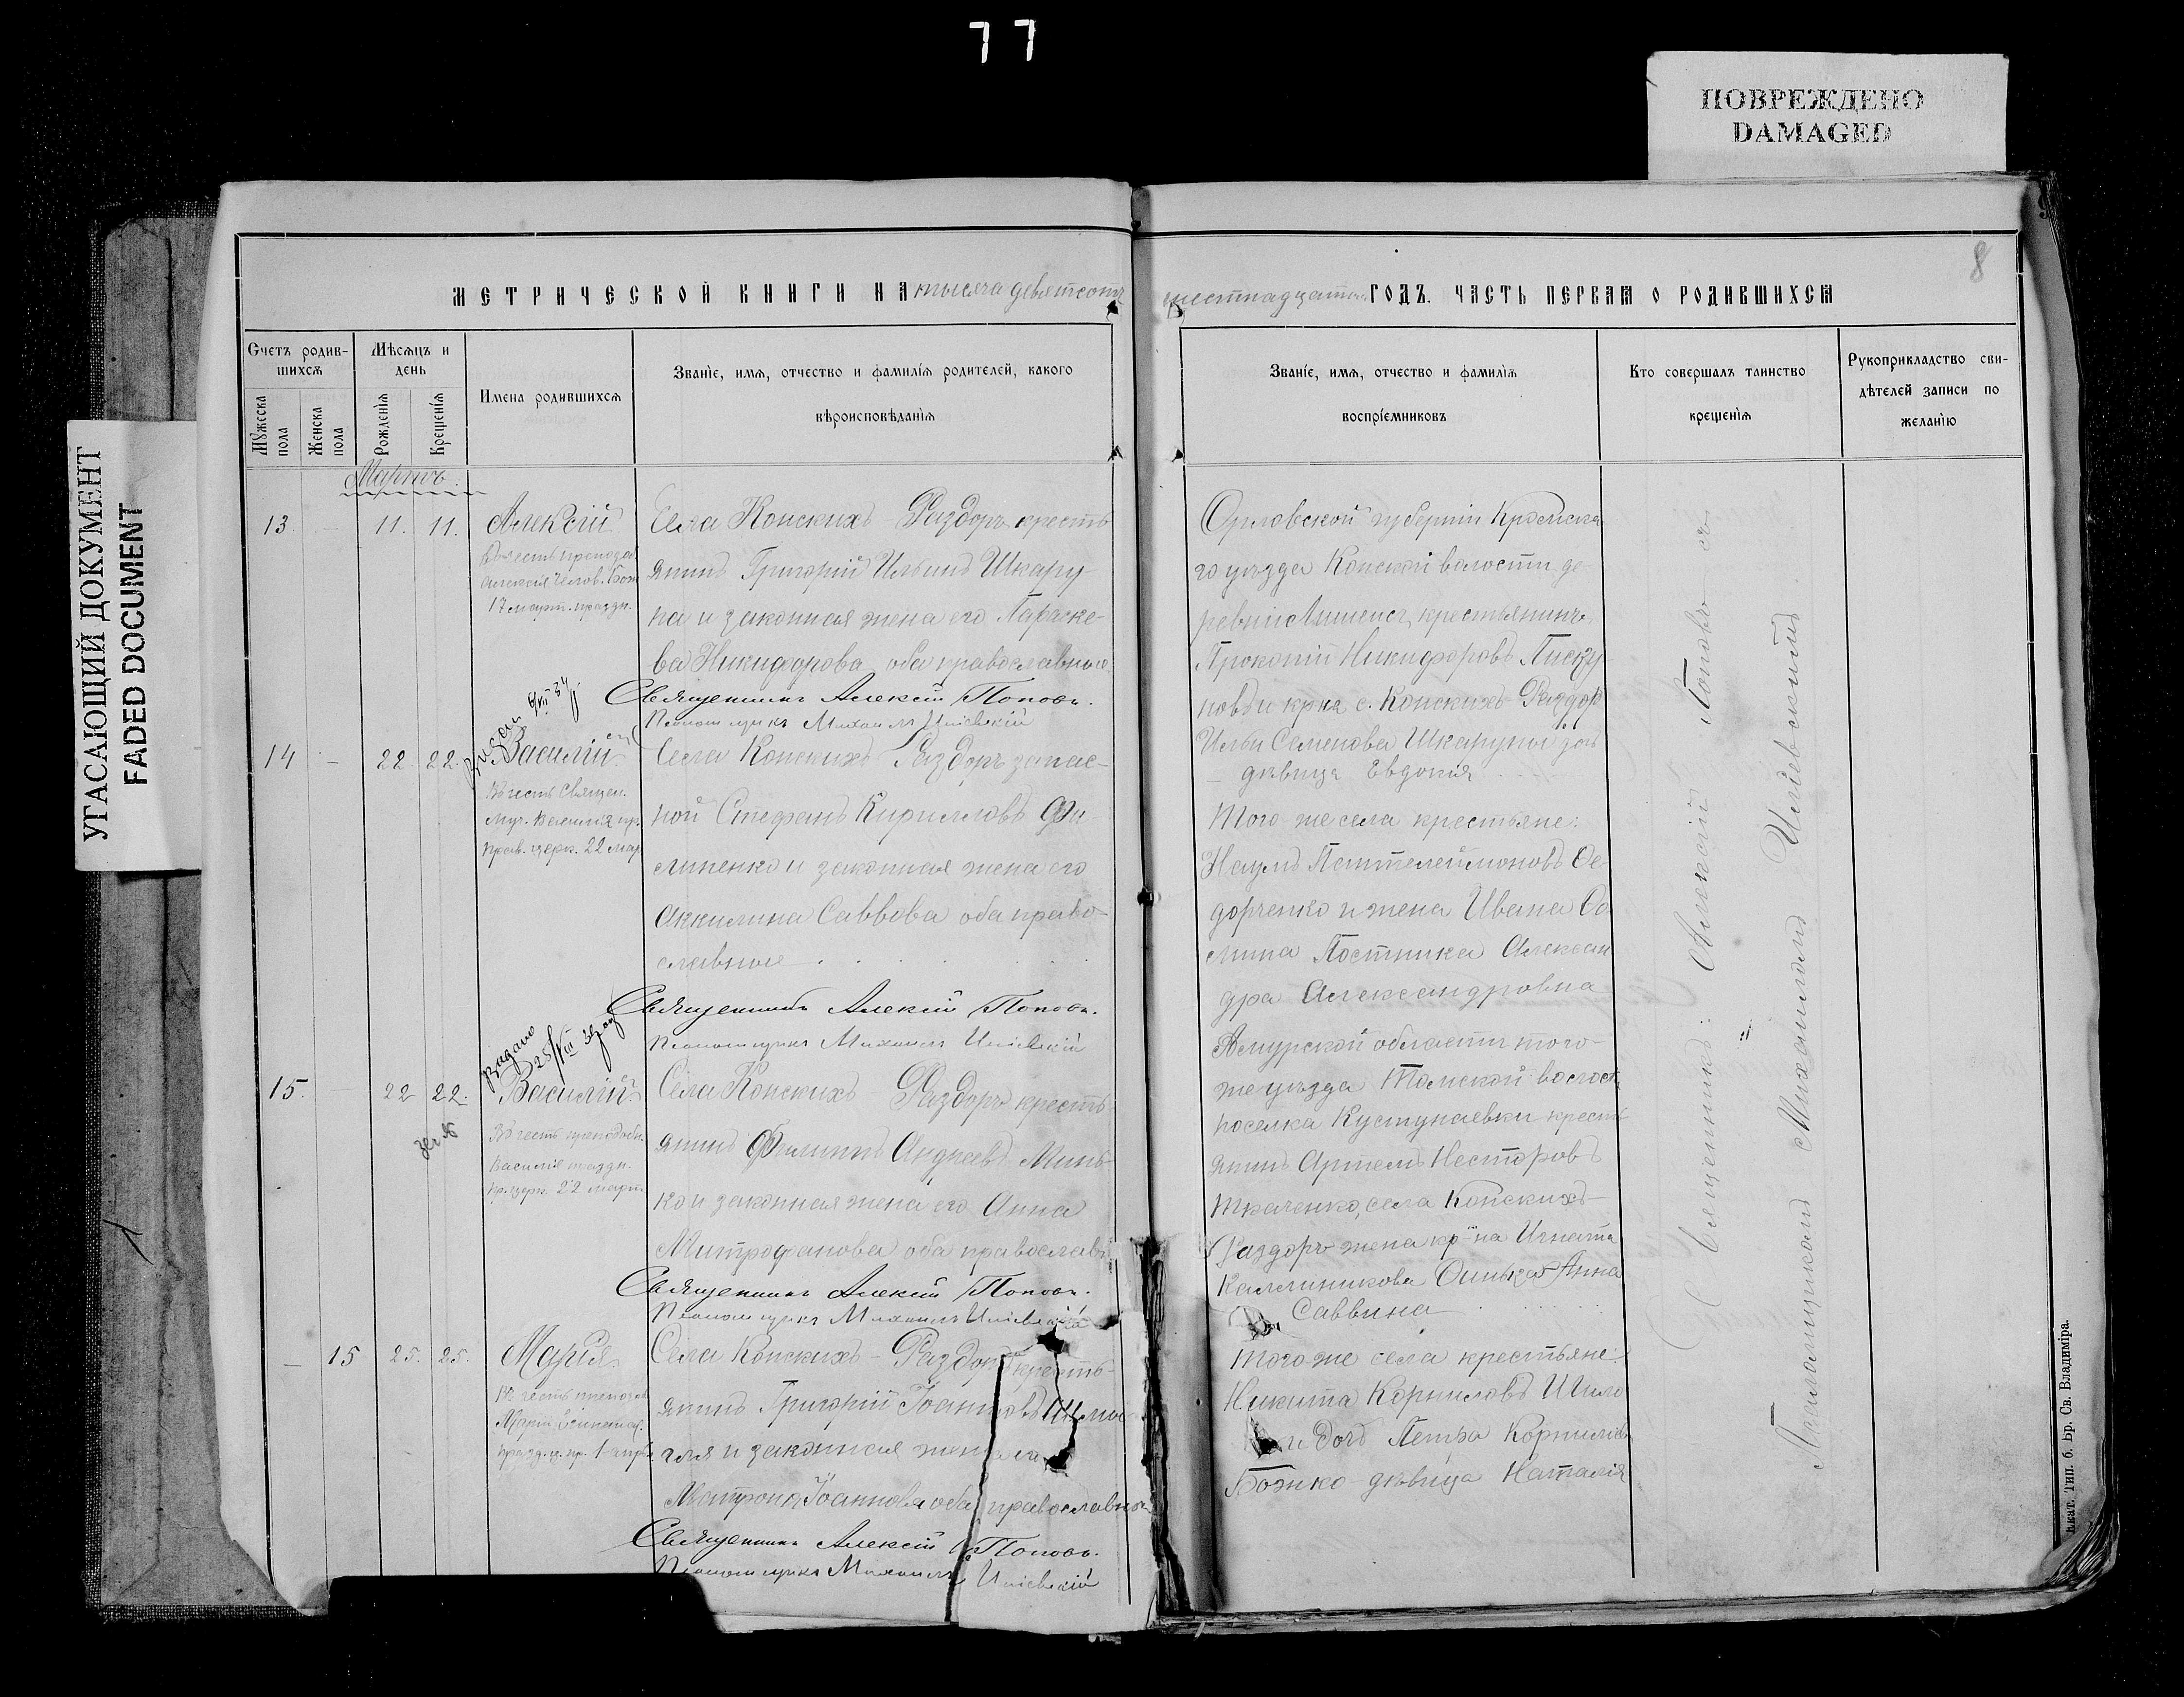 77
ПОВРЕЖДЕНО
DAMAGED
УГАСАЮЩИЙ ДОКУМЕНТ
FADED DOCUMENT
8
МЕТРИЧЕСКОЙ КНИГИ НА тысяча девятсотъ шестнадцатый ГОДЪ. ЧАСТЬ ПЕРВАЯ О РОДИВШИХСЯ
Счетъ родив-
шихся
Мужеска пола
Женска пола
Мѣсяцъ и
день
Рожденія
Крещенія
Имена родившихся
Званіе, имя, отчество и фамилія родителей, какого
вѣроисповѣданія
Званіе, имя, отчество и фамилія
воспріемниковъ
Кто совершалъ таинство
крещенія
Рукоприкладство сви-
дѣтелей записи по
желанію
Мартъ.
13. 11. 11. Алексій
17 март. праздн.
Села Конскихъ Раздоръ кресть
янинъ Григорій Ильинъ Шкару-
па и законная жена его Параске-
ва Никифорова, оба православные
Священникъ Алексій Поповъ.
Псаломщикъ Михаилъ
Орловской губерніи Кромска
го уѣзда Конской волости де
ревни крестьянинъ
Прокопій Никифоровъ Писку
новъ и кр-на с. Конскихъ Раздоръ
Ильи Семенова Шкарупы дочь
дѣвица Евдокія
14 - 22. 22. Василій
Въ честь Священ.
муч. Василія пр.
прав. церк. 22 мар.
Села Конскихъ Раздоръ запас-
ной Стефанъ Кирилловъ Фи-
липенко и законная жена его
Акилина Саввова оба право-
славные
Священникъ Алексій Поповъ.
Псаломщикъ Михаилъ
Того же села крестьяне:
Наумъ Пантелеймоновъ Ѳе-
дорченко и жена Ивана Ѳо
мина Постника Алексан
дра Александровна
Видано
15. 22 22. Василій
Въ честь преподобн.
Василія праздн.
пр. церк. 22 март.
Села Конскихъ Раздоръ кресть-
янинъ Филиппъ Андреевъ Минь-
ко и законная жена его Анна
Митрофанова оба православн
Священникъ Алексій Поповъ.
Псаломщикъ Михаилъ
Амурской области того-
же уѣзда Томской волост
поселка Кустунаевки кресть
янинъ Артемъ Несторовъ
Ткаченко, села Конскихъ-
Раздоръ жена кр-на Игната
Каллиникова Анна
Саввина
- 15 25. 25. Марія
Села Конскихъ-Раздоръ кресть-
янинъ Григорій Іоанновъ
и законная жена его
Матрона Іоаннова оба православные
Священникъ Алексій Поповъ.
Псаломщикъ Михаилъ
Того же села крестьяне:
Никита Корниловъ Шило
и дочь Петра Корнилова
Божко дѣвица Наталія
Священникъ: Алексій Поповъ съ
Псаломщикомъ Михаиломъ
Екат. Тип. б. Бр. Св. Владиміра.